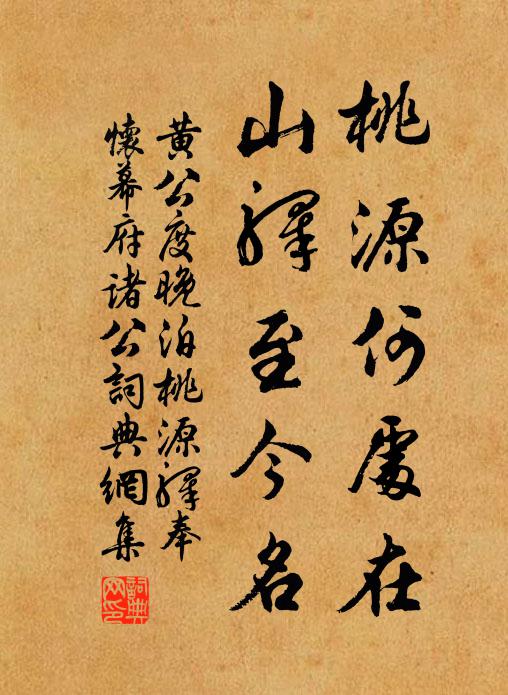 桃源何處在
山驛至今名
黄公度晚泊桃源驛奉
懷幕府诸公詞典網集
詞典网印